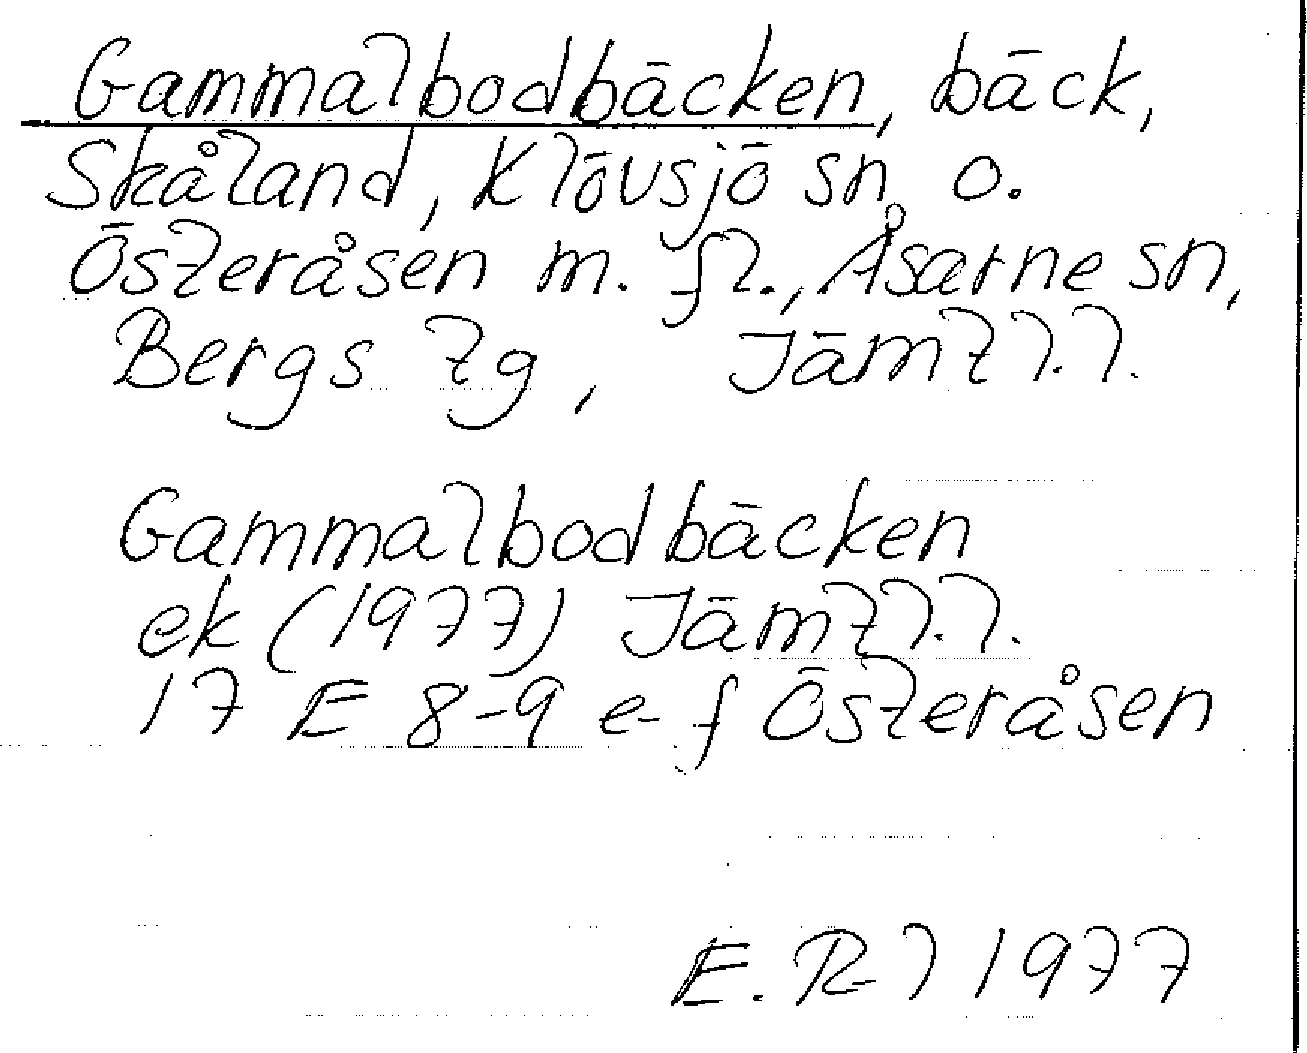 Gammalbodbäcken, bäck,
Skåland, Klövsjö sn o.
Österåsen m. fl., Åsarne sn,
Bergs tg, Jämtl.l.
Gammalbodbäcken
ek (1977) Jämtl.l.
17 E 8-9 e-f Österåsen
E. R-l 1977